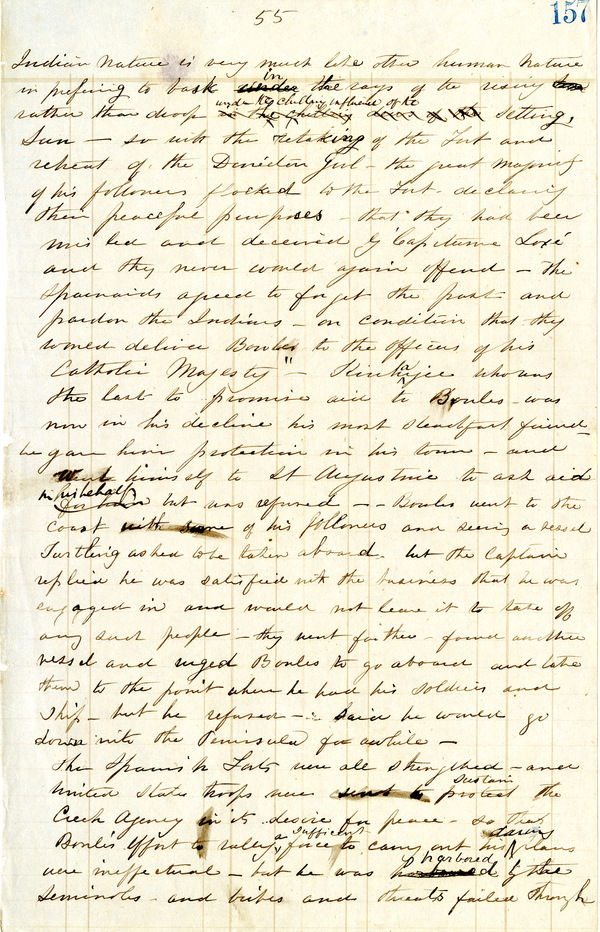 55
157
Indian nature is very much like other human nature
in prefering to bask in the rays of the rising
rather than droop under the chilling influence of the setting
Sun — so with the retaking of the Fort and
retreat of the Director Genl — the great majority
of his followers flocked to the Fort declaring
their peaceful purposes — that they had been
mis led and deceived by Capitaine Loxé
and they never would again offend — the
Spaniards agreed to forget the past and
pardon the Indians — on condition that they
would deliver Bowles to the Officers of his
Catholic Majesty" — Kinhajee who was
the last to promise aid to Bowles — was
now in his decline his most steadfast friend —
he gave him protection in his town — and
went himself to St Augustine to ask aid
in his behalf but was refused — Bowles went to the
coast with some of his followers and seeing a vessel
Turtling asked to be taken aboard but the Captain
replied he was satisfied with the business that he was
engaged in and would not leave it to take off
any such people — they went further — found another
vessel and urged Bowles to go aboard and take
them to the point where he had his soldiers and
Ship — but he refused — said he would go
down into the Peninsula for awhile —
The Spanish Forts were all strengthed — and
United States troops were sustain the
Creek Agency in its desire for peace — so that
Bowles effort to rally a sufficient force to carry out his daring plans
were ineffectual — but he was harbored by the
Seminoles — and bribes and threats failed through